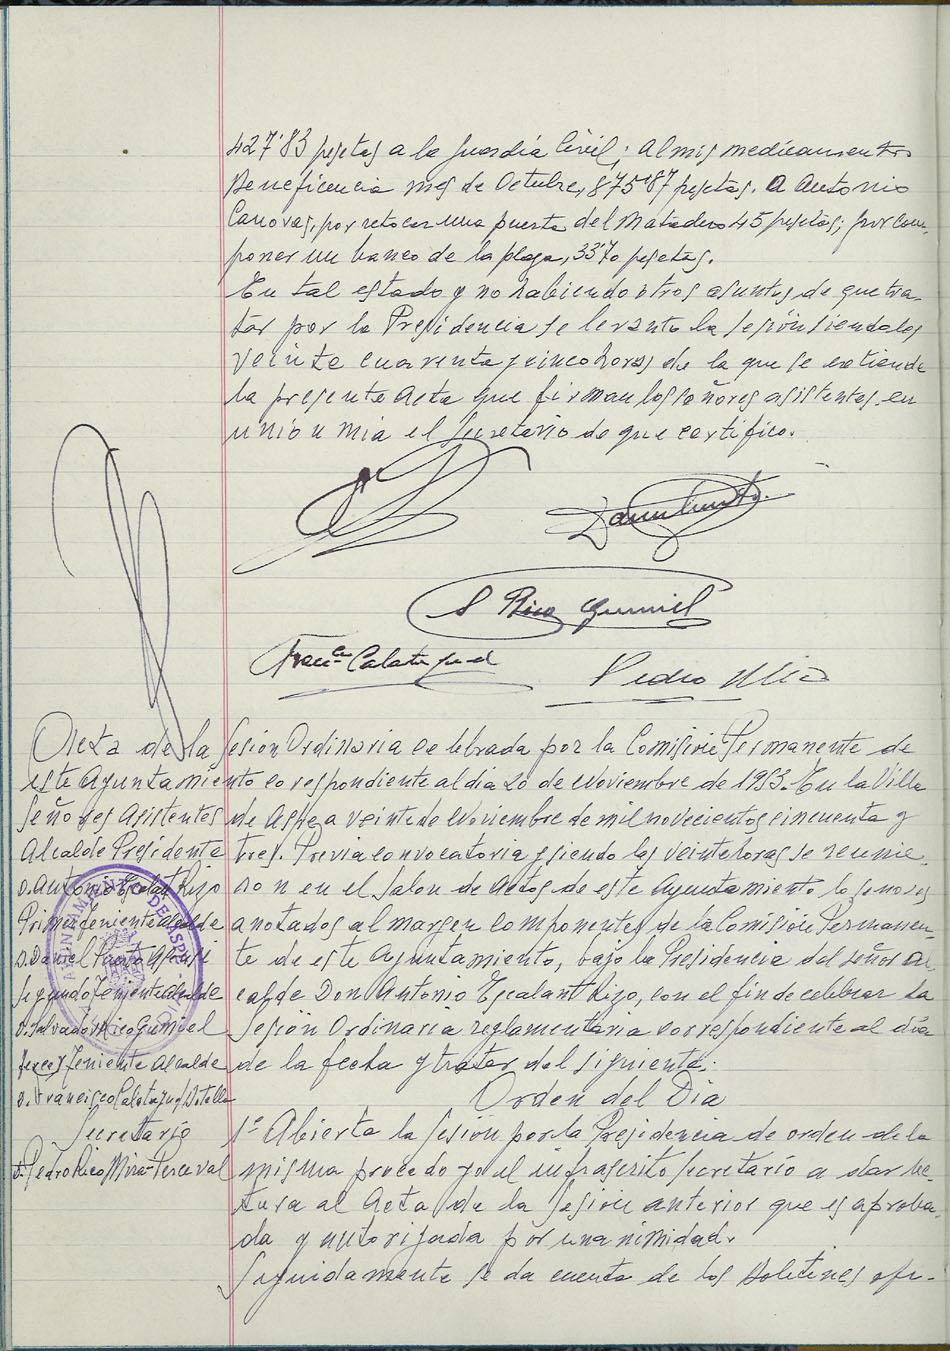 427'83 pesetas a la Guardia Civil; Al mismo medicamentos
Beneficencia mes de Octubre, 875'87 pesetas. A Antonio
Canovas, por retocar una puerta del Matadero 45 pesetas; por com-
poner un banco de la plaza, 33'70 pesetas.
En tal estado y no habiendo otros asuntos de que tra-
tar por la Presidencia se levanto la sesión siendo las
veinte cuarenta y cinco horas de la que se extiende
la presente Acta que firman los señores asistentes en
union mia el Secretario de que certifico.
S Rico Gumiel
Franco Calatayud
Pedro Rico
Acta de la Sesión Ordinaria celebrada por la Comisión Permanente de
este Ayuntamiento correspondiente al dia 20 de Noviembre de 1953.- En la Villa
Señores Asistentes
Alcalde Presidente
D. Antonio Escalant Rizo
Primer Teniente Alcalde
D. Daniel
Segundo Teniente Alcalde
D. Salvador Rico Gumiel
Tercer Teniente Alcalde
D. Francisco Calatayud Botella
Secretario
D. Pedro Rico Mira-Perceval
de Aspe a veinte de Noviembre de mil novecientos cincuenta y
tres. Previa convocatoria y siendo las veinte horas se reunie-
ron en el Salon de Actos de este Ayuntamiento los señores
anotados al margen componentes de la Comisión Permanen-
te de este Ayuntamiento, bajo la Presidencia del señor Al-
calde Don Antonio Escalant Rizo, con el fin de celebrar la
Sesión Ordinaria reglamentaria correspondiente al día
de la fecha y tratar del siguiente:
Orden del Dia
1º Abierta la Sesión por la Presidencia de orden de la
misma procedo yo el infrascrito Secretario a dar lec-
tura al Acta de la Sesión anterior que es aproba-
da y autorizada por unanimidad.
Seguidamente se da cuenta de los Boletines ofi-
AYUNTAMIENTO DE ASPE